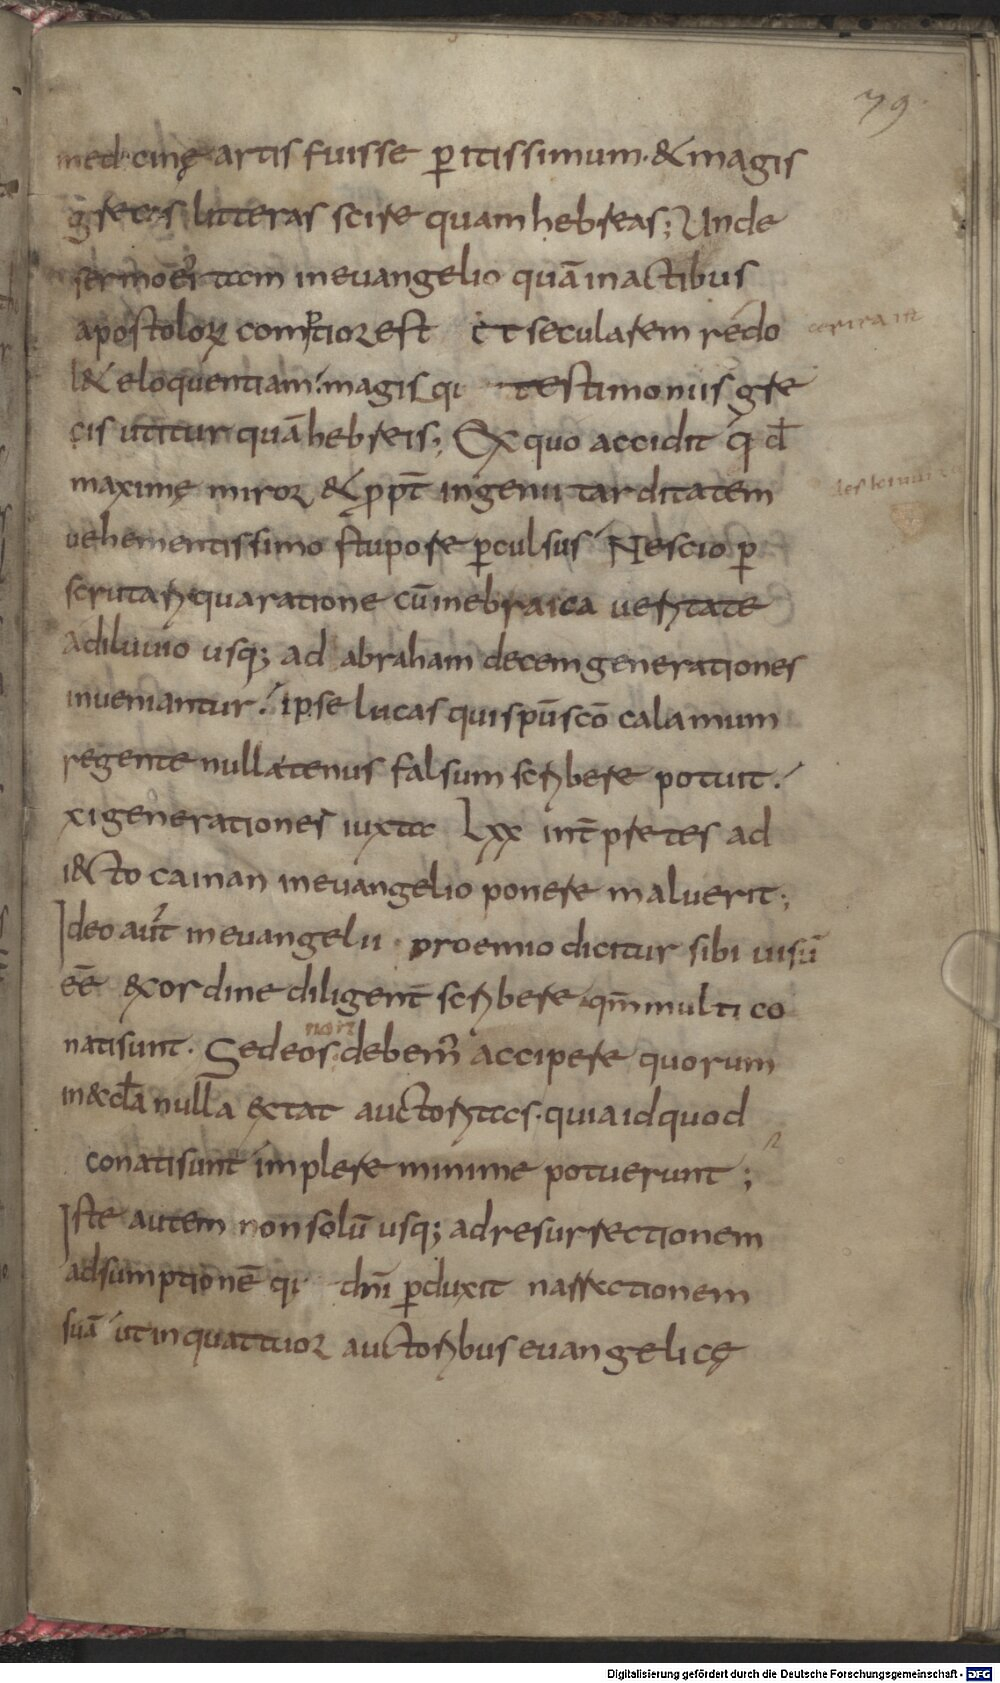 79
medicinę artis fuisse ꝑitissimum. & magis
grecas litteras scire quam hebreas; Unde
sermo ei tam in evangelio quā in actibus
apostoloꝝ comptior est et secularem redo
l& eloquentiam. magis qi testimoniis gre
cis utitur quā hebreis; Ex quo accidit qd
maximę miror & ppt ingenii tarditatem
vehementissimo stupore ꝑculsus Nescio ꝑ
scrutari qua ratione cū in ebraica veritate
a diluvio usq; ad abraham decem generationes
inveniantur. ipse lucas qui spū scō calamum
regente nullatenus falsum scribere potuit.
xi generationes iuxta Lxx intpretes ad
i&cto cainan in evangelio ponere maluerit;
Ideo aut in evangelii proemio dicitur sibi visū
eē ex ordine diligent scribere qm multi co
nati sunt. Sed eos non debem accipere quorum
in eccla nulla extat auctoritas. quia id quod
conati sunt implere minime potuerunt;
Iste autem non solū usq; ad resurrectionem
adsumptionē qi dni ꝑduxit narrectionem
suā ut in quattuor auctoribus evangelicę
Digitalisierung gefördert durch die Deutsche Forschungsgemeinschaft - DFG